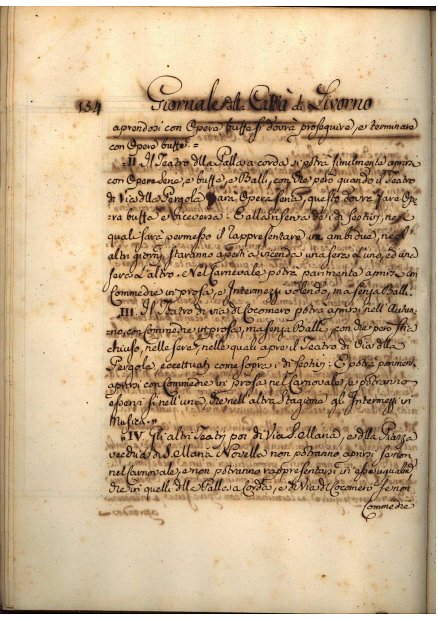 134 Giornale della Città di Livorno
aprendosi con Opere buffe si dovrà proseguire, e terminare
con Opere buffe =
II. Il Teatro della Palla a corda si potrà similmente aprire
con Opere serie, e buffe, e Balli, con che però quando il Teatro
di Via della Pergola farà Opera seria, questo dovrà fare Ope-
ra buffa e viceversa: E all'inserva dei di festivi, nei
quali sarà permesso il rappresentare in ambidue, negl'
altri giorni staranno aperti a vicenda una sera l'uno, ed una
sera l'altro. Nel Carnevale potrà parimente aprirsi con
Commedie in prosa, e Intermezzi volendo, ma senza Balli.
III. Il Teatro di via del Cocomero potrà aprirsi nell'Autun-
no, con Commedie in prosa, ma senza Balli, con che però stia
chiuso, nelle sere, nelle quali apre il Teatro di Via della
Pergola eccettuati come sopra i dì festivi: E potrà parimente
aprirsi con Commedie in prosa nel Carnovale, e potranno
esservi sì nell'una, che nell'altra Stagione gli Intermezzi in
Musica =
IV. Gli altri Teatri poi di Via S. Maria, e della Piazza
vecchia di S. Maria Novella non potranno aprirsi se non
nel Carnovale, e non potranno rappresentarsi in essi ugual
che in quelli della Palla a Corda, e di Via del Cocomero se non
Commedie